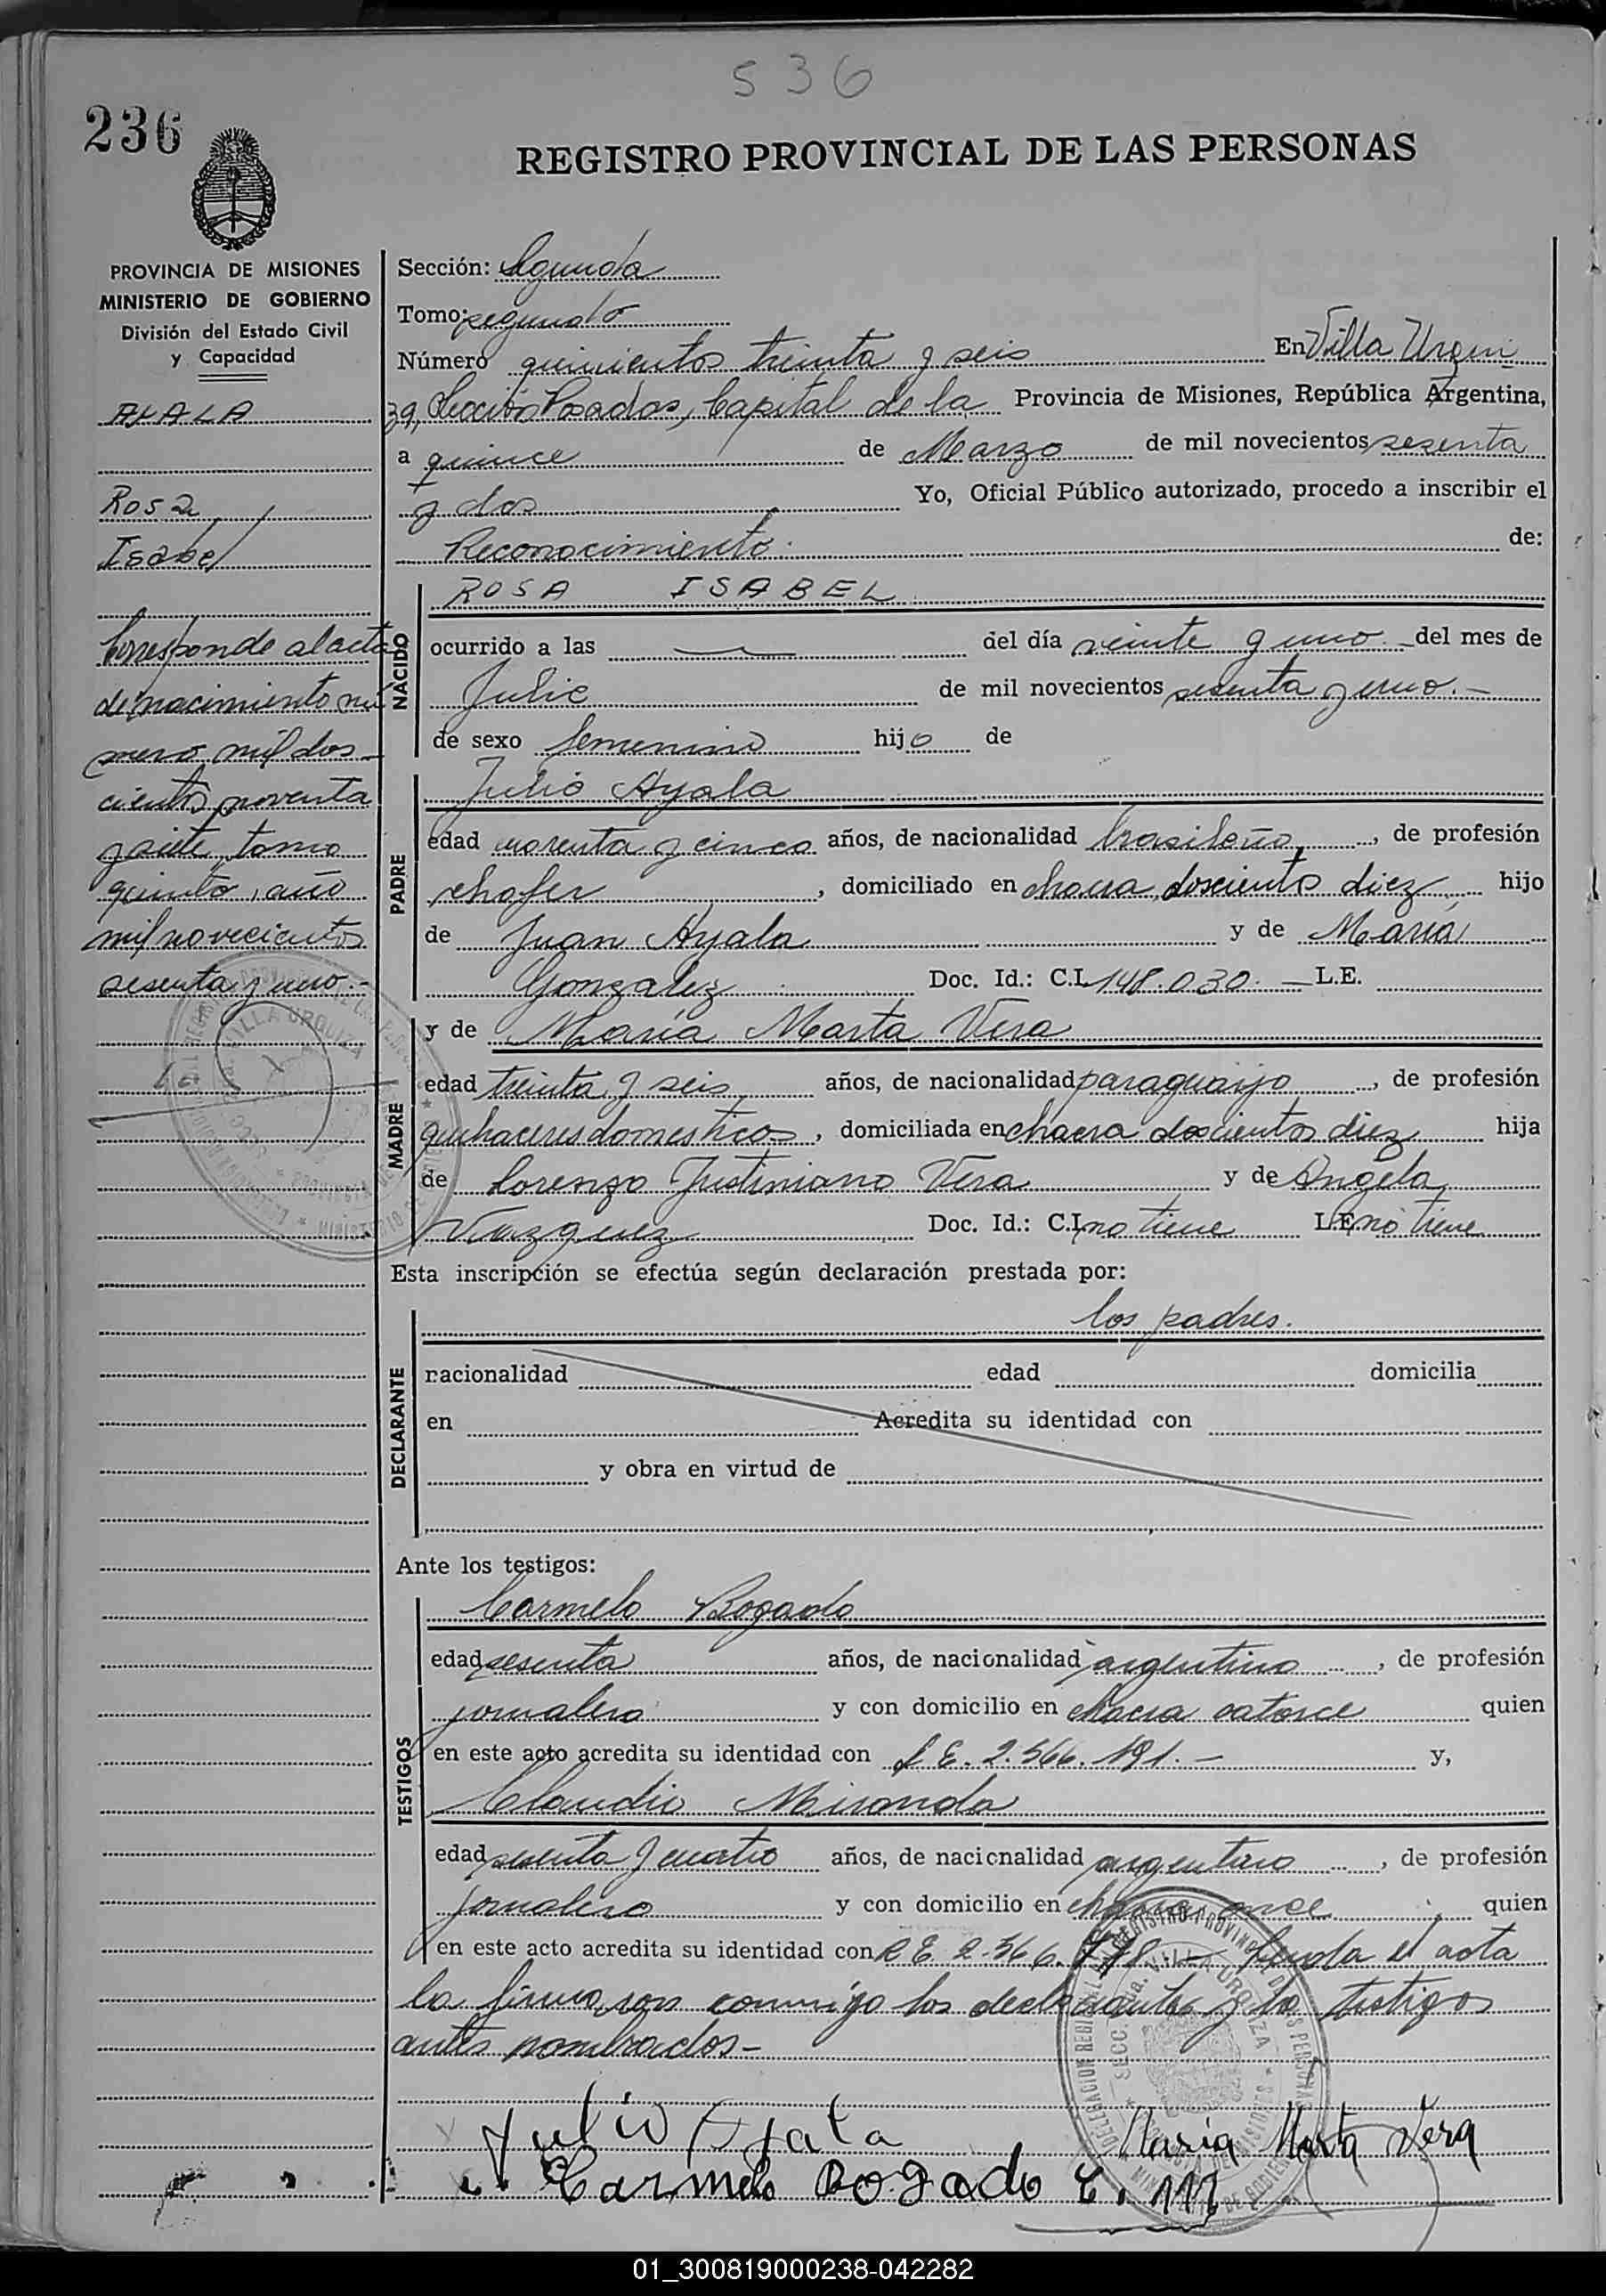 536
236
REGISTRO PROVINCIAL DE LAS PERSONAS
PROVINCIA DE MISIONES
MINISTERIO DE GOBIERNO
División del Estado Civil
y Capacidad
AYALA
Rosa
Isabel
Corresponde al acta
de nacimiento nú
mero mil dos
cientos noventa
y siete, tomo
quinto, año
mil novecientos
sesenta y uno.-
Sección: Segunda
Tomo: segundo
Número quinientos treinta y seis En Villa Urqui
za, Sección Posadas, Capital de la Provincia de Misiones, República Argentina,
a quince de Marzo de mil novecientos sesenta
y dos Yo, Oficial Público autorizado, procedo a inscribir el
Reconocimiento. de:
NACIDO
ROSA ISABEL
ocurrido a las — del día veinte y uno.- del mes de
Julio de mil novecientos sesenta y uno.-
de sexo femenino hijo de
PADRE
Julio Ayala
edad cuarenta y cinco años, de nacionalidad brasileño, de profesión
chofer, domiciliado en chacra doscientos diez hijo
de Juan Ayala y de María
Gonzalez Doc. Id.: C.I. 148.030.- L.E.
MADRE
y de María Marta Vera
edad treinta y seis años, de nacionalidad paraguayo, de profesión
quehaceres domesticos, domiciliada en chacra doscientos diez hija
de Lorenzo Justiniano Vera y de Angela
Vazquez Doc. Id.: C.I. no tiene L.E. no tiene
Esta inscripción se efectúa según declaración prestada por:
DECLARANTE
los padres.
nacionalidad edad domicilia
en Acredita su identidad con
y obra en virtud de
Ante los testigos:
TESTIGOS
Carmelo Bogado
edad sesenta años, de nacionalidad argentino, de profesión
jornalero y con domicilio en chacra catorce quien
en este acto acredita su identidad con L.E. 2.566.191.- y,
Claudio Miranda
edad sesenta y cuatro años, de nacionalidad argentino, de profesión
jornalero y con domicilio en chacra once quien
en este acto acredita su identidad con L.E. 2.566. Leyda el acta
la firmaron conmigo los declarantes y los testigos
antes nombrados-
Julio Ayala
María Marta Vera
Carmelo Bogado C. M
01_300819000238-042282